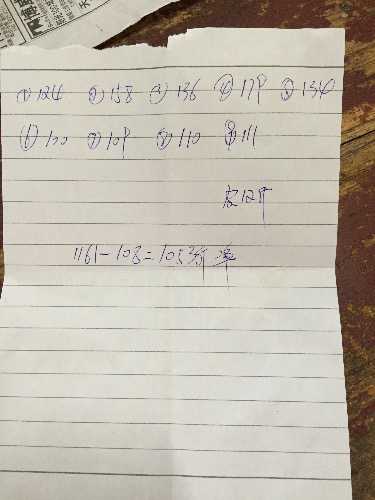 ①124 ②158 ③136 ④179 ⑤134
⑥100 ⑦109 ⑧110 ⑨111
皮12斤
1161-108=1053斤